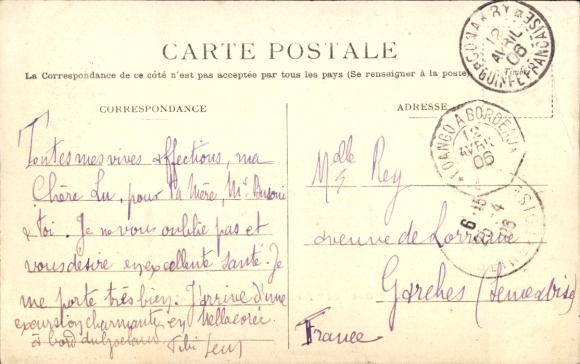 CARTE POSTALE
La Correspondance de ce côté n'est pas acceptée par tous les pays (Se renseigner à la poste)
Timbre
CORRESPONDANCE
ADRESSE
CONAKRY
12 AVRIL 06
GUINÉE FRANÇAISE
LOANGO A BORDEAUX
12 AVRIL 06
Toutes mes vives affections, ma
Chère Lu, pour ta Mère, Mr
& toi. Je ne vous oublie pas et
vous désire en excellente santé. Je
me porte très bien. J'arrive d'une
excursion charmante en
à bord du
Melle Rey
avenue de Lorraine
Garches (Seine & Oise)
France